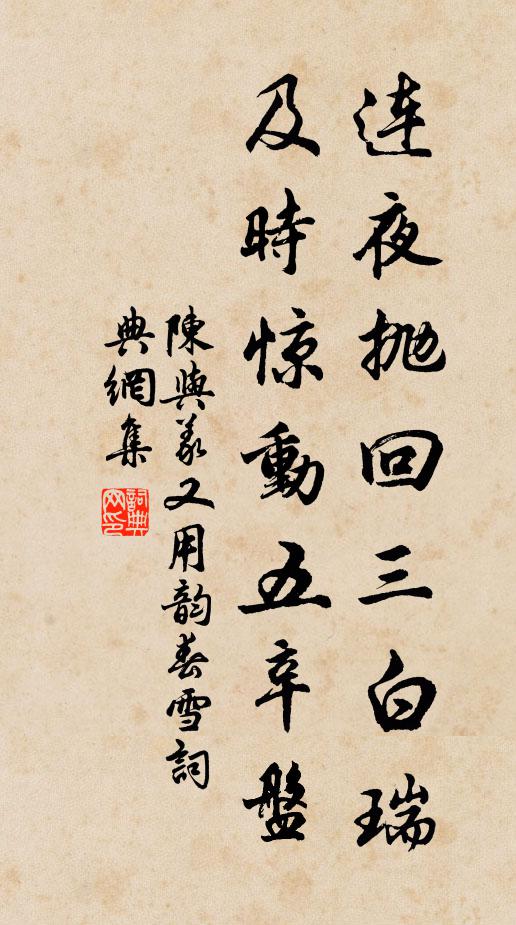 連夜抛回三白瑞
及時惊動五辛盤
陳與義又用韵春雪詞
典網集
詞典網印